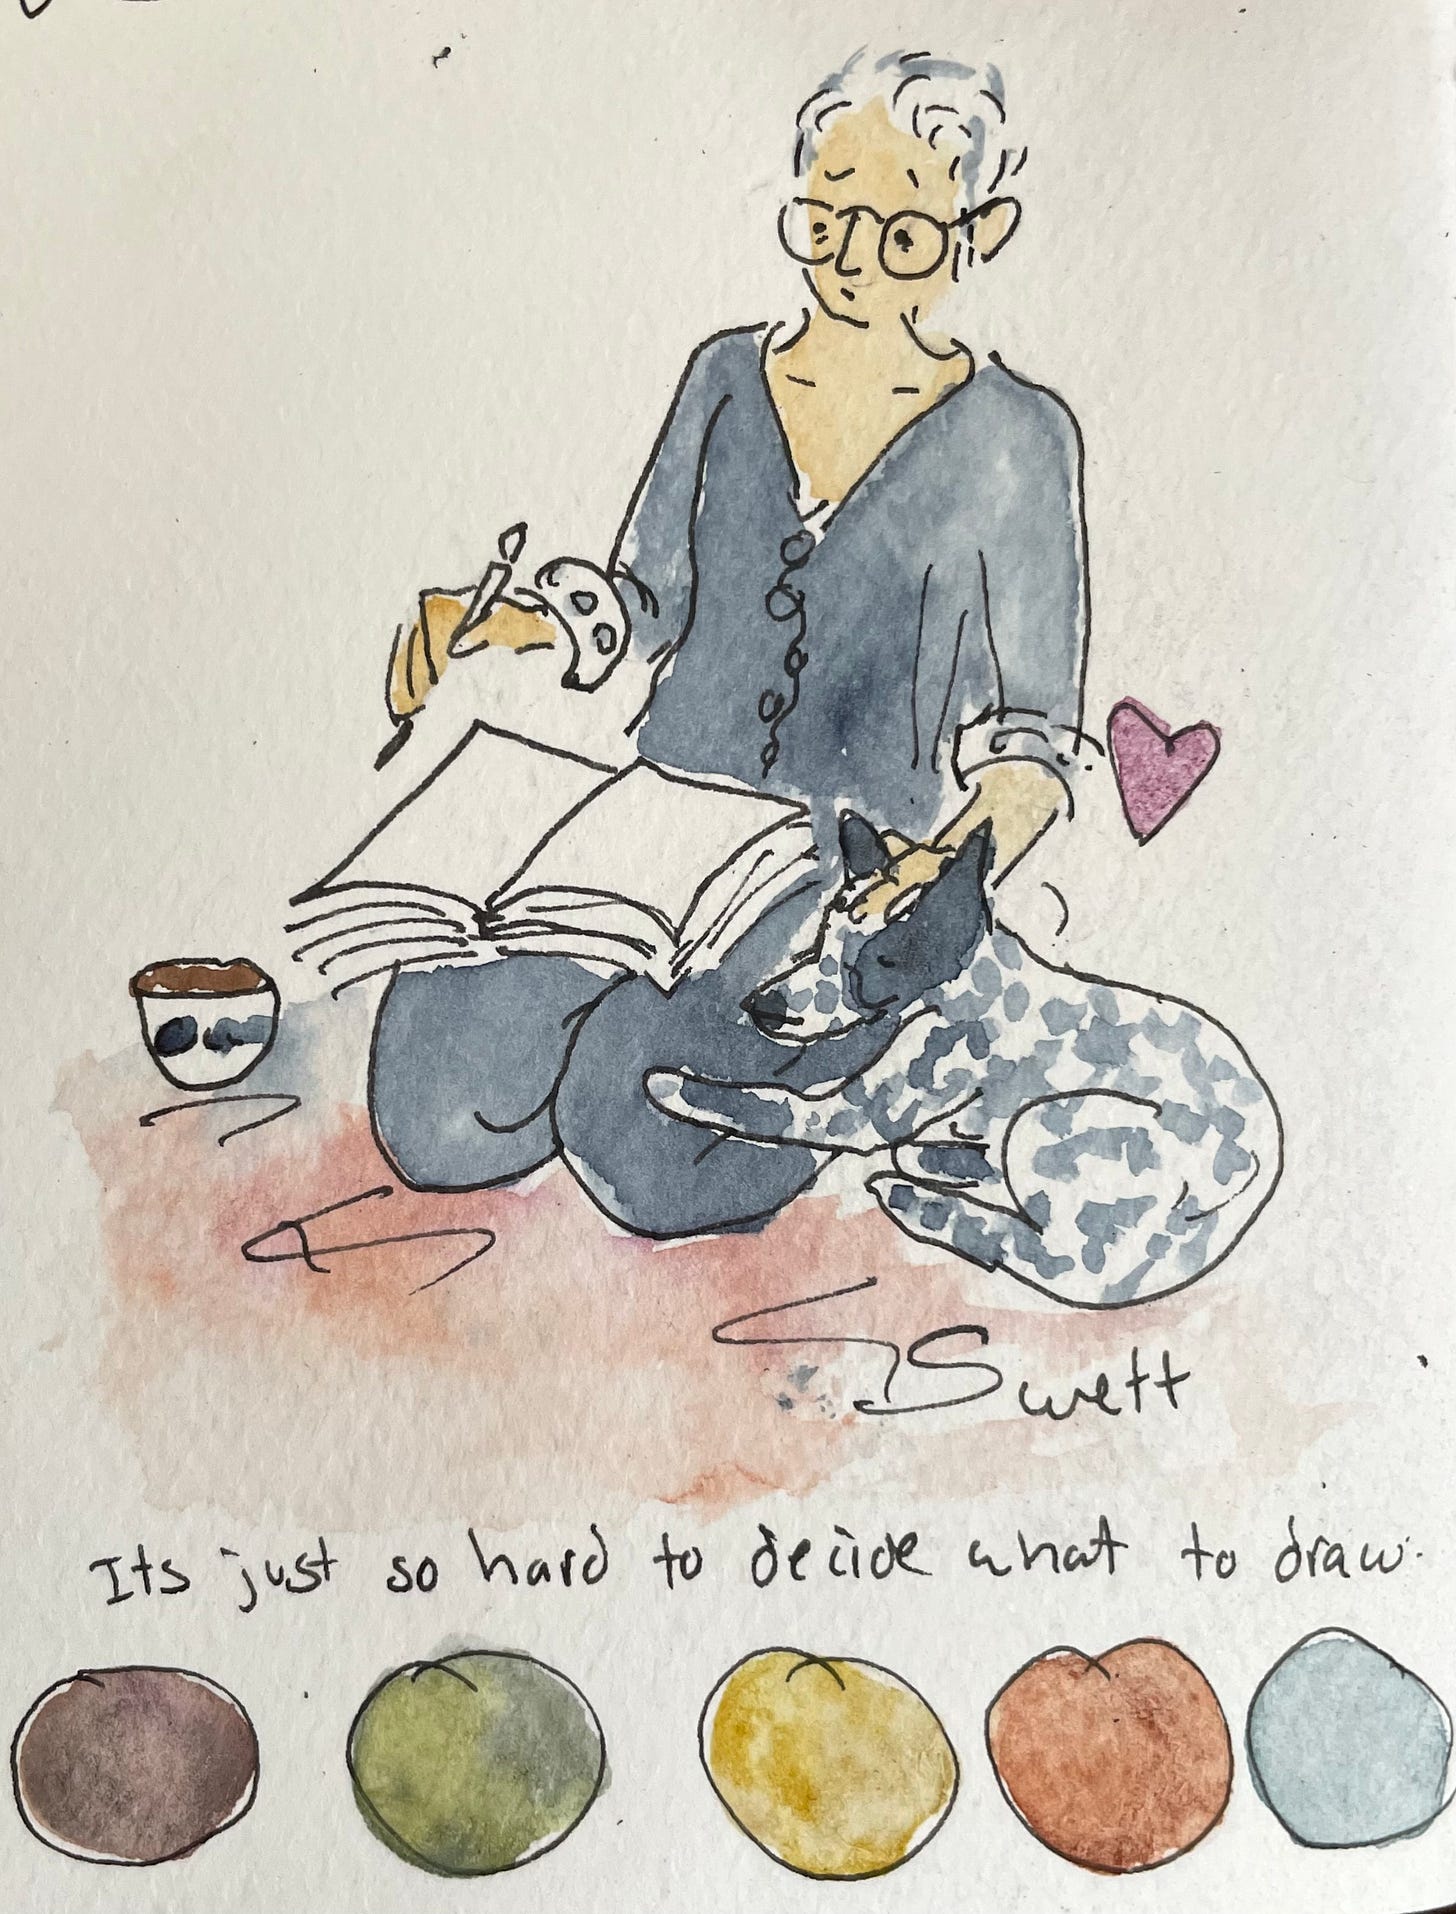 Swett
Its just so hard to decide what to draw.